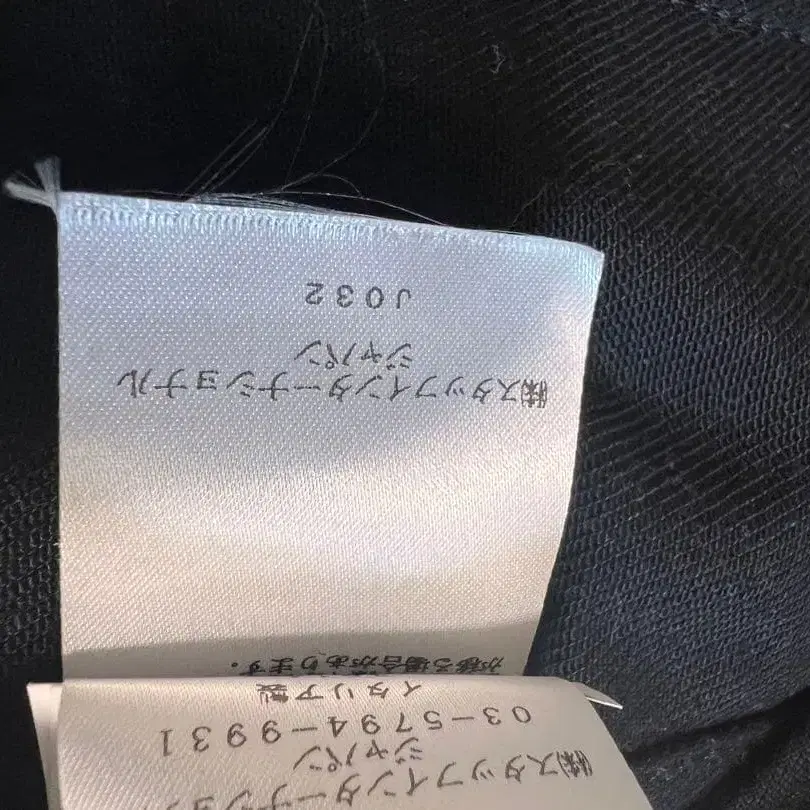 ㈱スタッフインターナショ
ジャパン
03-5794-9931
イタリア製
が移る場合があります。
㈱スタッフインターナショナル
ジャパン
J032